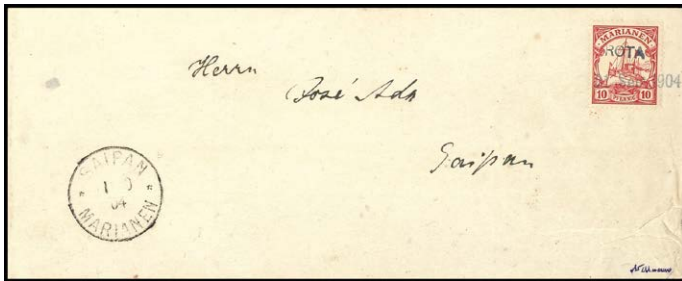 MARIANEN
ROTA
1904
10 PFENNIG 10
Herrn
José Ada
Saipan
SAIPAN
1
04
MARIANEN